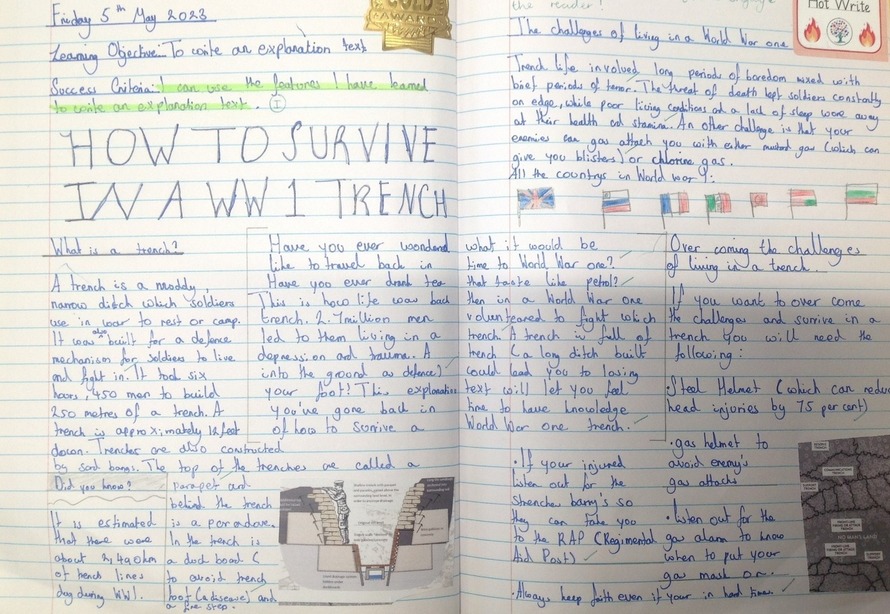 Friday 5th May 2023
Learning Objective: To write an explanation text
Success Criteria: I can use the features I have learned
to write an explanation text. I
HOW TO SURVIVE
IN A WW1 TRENCH
What is a trench?
A trench is a muddy,
narrow ditch which soldiers
use in war to rest or camp.
It was also built for a defence
mechanism for soldiers to live
and fight in. It took six
hours, 450 men to build
250 metres of a trench. A
trench is approximately 12 feet
down. Trenches are also constructed
by sand bangs. The top of the trenches are called a
parapet and
behind the trench
is a paradave.
In the trench is
a duck board (
to avoid trench
foot (a disease) and
a fire step.
Did you know?
It is estimated
that there were
about 2,490km
of trench lines
dug during WW1.
Have you ever wondered what it would be
like to travel back in time to World War one?
Have you ever drank tea that taste like petrol?
This is how life was back then in a World War one
trench. 2.7million men volunteered to fight which
led to them living in a trench. A trench is full of
depression and trauma. A trench (a long ditch built
into the ground as defence) could lead you to losing
your foot! This explanation text will let you feel
you've gone back in time to have knowledge
of how to survive a World War one trench.
the reader!
Hot Write
The challenges of living in a World War one
Trench life involved long periods of boredom mixed with
brief periods of terror. The threat of death kept soldiers constantly
on edge, while poor living conditions and a lack of sleep wore away
at their health and stamina. An other challenge is that your
enemies can gas attach you with either mustard gas (which can
give you blisters) or chlorine gas.
All the countrys in World war 1:
Over coming the challenges
of living in a trench.
If you want to over come
the challenges and survive in a
trench you will need the
following:
·Steel Helmet (which can reduce
head injuries by 75 per cent)
·gas helmet to
avoid enemy's
gas attachs
·listen out for the
gas alarm to know
when to put your
gas mask on.
·If your injured
listen out for the
strencher barry's so
they can take you
to the RAP (Regimental
Aid Post)
·Always keep faith even if your in hard time.
NO MAN'S LAND